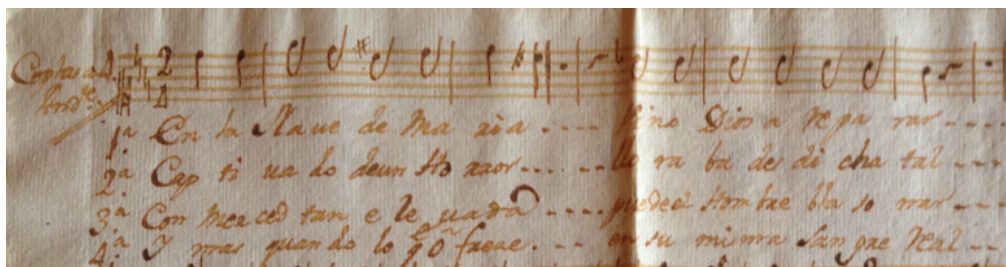 Coplas a 4.
And.te
2 4
1.a En la Nave de Maria .... vino Dios a repa rar ---
2.a Cap ti va do de un Ho rror ...... llo ra ba des di cha tal ---
3.a Con merced tan e le vada .... puede el Hombre bla so nar ---
4.a Y mas quando lo q.e fuere . --- en su misma San gre Real --